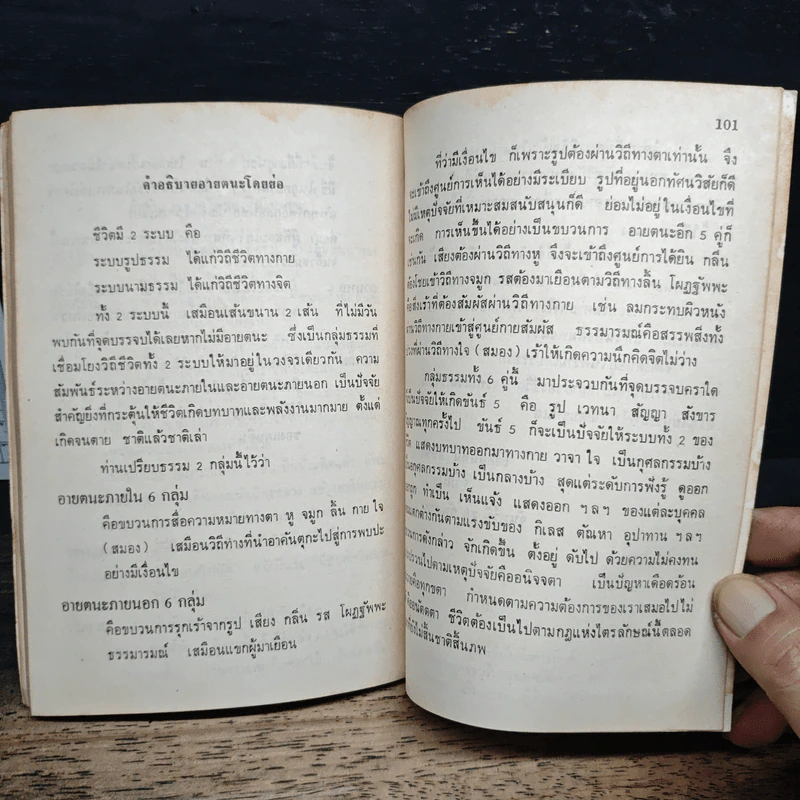 คำอธิบายอายตนะโดยย่อ
ชีวิตมี 2 ระบบ คือ
ระบบรูปธรรม ได้แก่วิถีชีวิตทางกาย
ระบบนามธรรม ได้แก่วิถีชีวิตทางจิต
ทั้ง 2 ระบบนี้ เสมือนเส้นขนาน 2 เส้น ที่ไม่มีวัน
พบกันที่จุดบรรจบได้เลยหากไม่มีอายตนะ ซึ่งเป็นกลุ่มธรรมที่
เชื่อมโยงวิถีชีวิตทั้ง 2 ระบบให้มาอยู่ในวงจรเดียวกัน ความ
สัมพันธ์ระหว่างอายตนะภายในและอายตนะภายนอก เป็นปัจจัย
สำคัญยิ่งที่กระตุ้นให้ชีวิตเกิดบทบาทและพลังงานมากมาย ตั้งแต่
เกิดจนตาย ชาติแล้วชาติเล่า
ท่านเปรียบธรรม 2 กลุ่มนี้ไว้ว่า
อายตนะภายใน 6 กลุ่ม
คือขบวนการสื่อความหมายทางตา หู จมูก ลิ้น กาย ใจ
(สมอง) เสมือนวิถีทางที่นำอาคันตุกะไปสู่การพบปะ
อย่างมีเงื่อนไข
อายตนะภายนอก 6 กลุ่ม
คือขบวนการรุกเร้าจากรูป เสียง กลิ่น รส โผฏฐัพพะ
ธรรมารมณ์ เสมือนแขกผู้มาเยือน
101
ที่ว่ามีเงื่อนไข ก็เพราะรูปต้องผ่านวิถีทางตาเท่านั้น จึง
จะเข้าถึงศูนย์การเห็นได้อย่างมีระเบียบ รูปที่อยู่นอกทัศนวิสัยก็ดี
ไม่มีเหตุปัจจัยที่เหมาะสมสนับสนุนก็ดี ย่อมไม่อยู่ในเงื่อนไขที่
จะเกิด การเห็นขึ้นได้อย่างเป็นขบวนการ อายตนะอีก 5 คู่ก็
เช่นกัน เสียงต้องผ่านวิถีทางหู จึงจะเข้าถึงศูนย์การได้ยิน กลิ่น
ต้องโชยเข้าวิถีทางจมูก รสต้องมาเยือนตามวิถีทางลิ้น โผฏฐัพพะ
คือสิ่งเร้าที่ต้องสัมผัสผ่านวิถีทางกาย เช่น ลมกระทบผิวหนัง
ผ่านวิถีทางกายเข้าสู่ศูนย์กายสัมผัส ธรรมารมณ์คือสรรพสิ่งทั้ง
ที่ผ่านวิถีทางใจ (สมอง) เร้าให้เกิดความนึกคิดจิตไม่ว่าง
กลุ่มธรรมทั้ง 6 คู่นี้ มาประจวบกันที่จุดบรรจบคราใด
เป็นปัจจัยให้เกิดขันธ์ 5 คือ รูป เวทนา สัญญา สังขาร
วิญญาณทุกครั้งไป ขันธ์ 5 ก็จะเป็นปัจจัยให้ระบบทั้ง 2 ของ
ชีวิต แสดงบทบาทออกมาทางกาย วาจา ใจ เป็นกุศลกรรมบ้าง
เป็นอกุศลกรรมบ้าง เป็นกลางบ้าง สุดแต่ระดับการฟังรู้ ดูออก
ทำเป็น เห็นแจ้ง แสดงออก ฯลฯ ของแต่ละบุคคล
แตกต่างกันตามแรงขับของ กิเลส ตัณหา อุปาทาน ฯลฯ
ขบวนการดังกล่าว จักเกิดขึ้น ตั้งอยู่ ดับไป ด้วยความไม่คงทน
แปรปรวนไปตามเหตุปัจจัยคืออนิจจตา เป็นปัญหาเดือดร้อน
คือทุกขตา กำหนดตามความต้องการของเราเสมอไปไม่
คืออนัตตตา ชีวิตต้องเป็นไปตามกฎแห่งไตรลักษณ์นี้ตลอด
ไม่สิ้นชาติสิ้นภพ